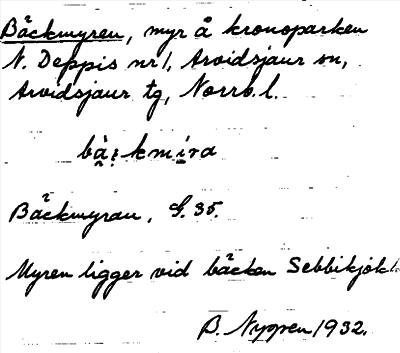 Bäckmyren, myr å kronoparken
N. Deppis nr 1, Arvidsjaur sn,
Arvidsjaur tg, Norrb. l.
Bäckmyran, G. 35.
Myren ligger vid bäcken Sebbikjokk.
B. Nyppen 1932.